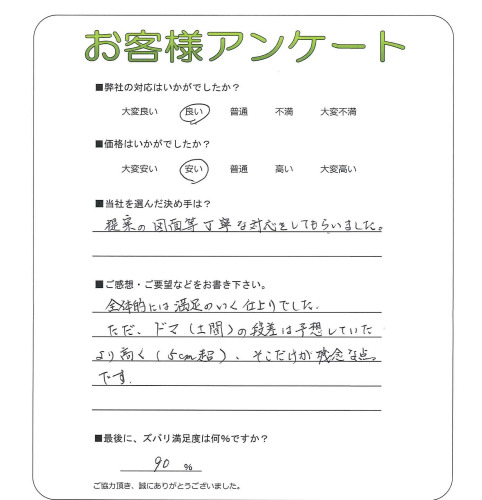 お客様アンケート
■弊社の対応はいかがでしたか?
大変良い 良い 普通 不満 大変不満
■価格はいかがでしたか?
大変安い 安い 普通 高い 大変高い
■当社を選んだ決め手は?
提案の図面等丁寧な対応をしてもらいました。
■ご感想・ご要望などをお書き下さい。
全体的には満足のいく仕上りでした.
ただ、ドマ(土間)の段差は予想していた
より高く(5cm超)、そこだけが残念な点
です.
■最後に、ズバリ満足度は何%ですか?
90 %
ご協力頂き、誠にありがとうございました。